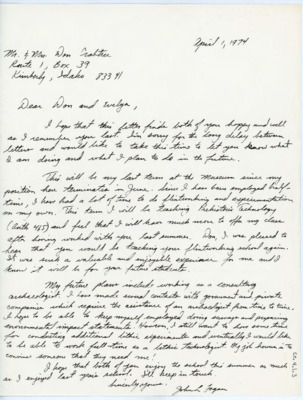 April 1, 1974
Mr. & Mrs. Don Crabtree
Route 1, Box 39
Kimberly, Idaho 83341
Dear Don and Evelyn,
I hope that this letter finds both of you happy and well
as I remember you last. I'm sorry for the long delay between
letters and would like to take this time to let you know what
I am doing and what I plan to do in the future.
This will be my last term at the Museum since my
position here terminates in June. Since I have been employed half-
time, I have had a lot of time to do flintworking and experimentation
on my own. This term I will be teaching Prehistoric Technology
(Anth 485) and feel that I will have much more to offer my class
after having worked with you last summer. Don, I was pleased to
hear that you would be teaching your flintworking school again.
It was such a valuable and enjoyable experience for me and I
know it will be for your future students.
My future plans include working as a consulting
archaeologist. I have made several contacts with government and private
companies which require the assistance of an archaeologist from time to time.
I hope to be able to keep myself employed doing surveys and preparing
environmental impact statements. However, I still want to have some time
for conducting additional lithic experiments and eventually I would like
to be able to work full-time as a lithic technologist. My job however is to
convince someone that they need me!
I hope that both of you enjoy the school this summer as much
as I enjoyed last year's school. I'll keep in touch.
Sincerely yours,
John L. Fagan